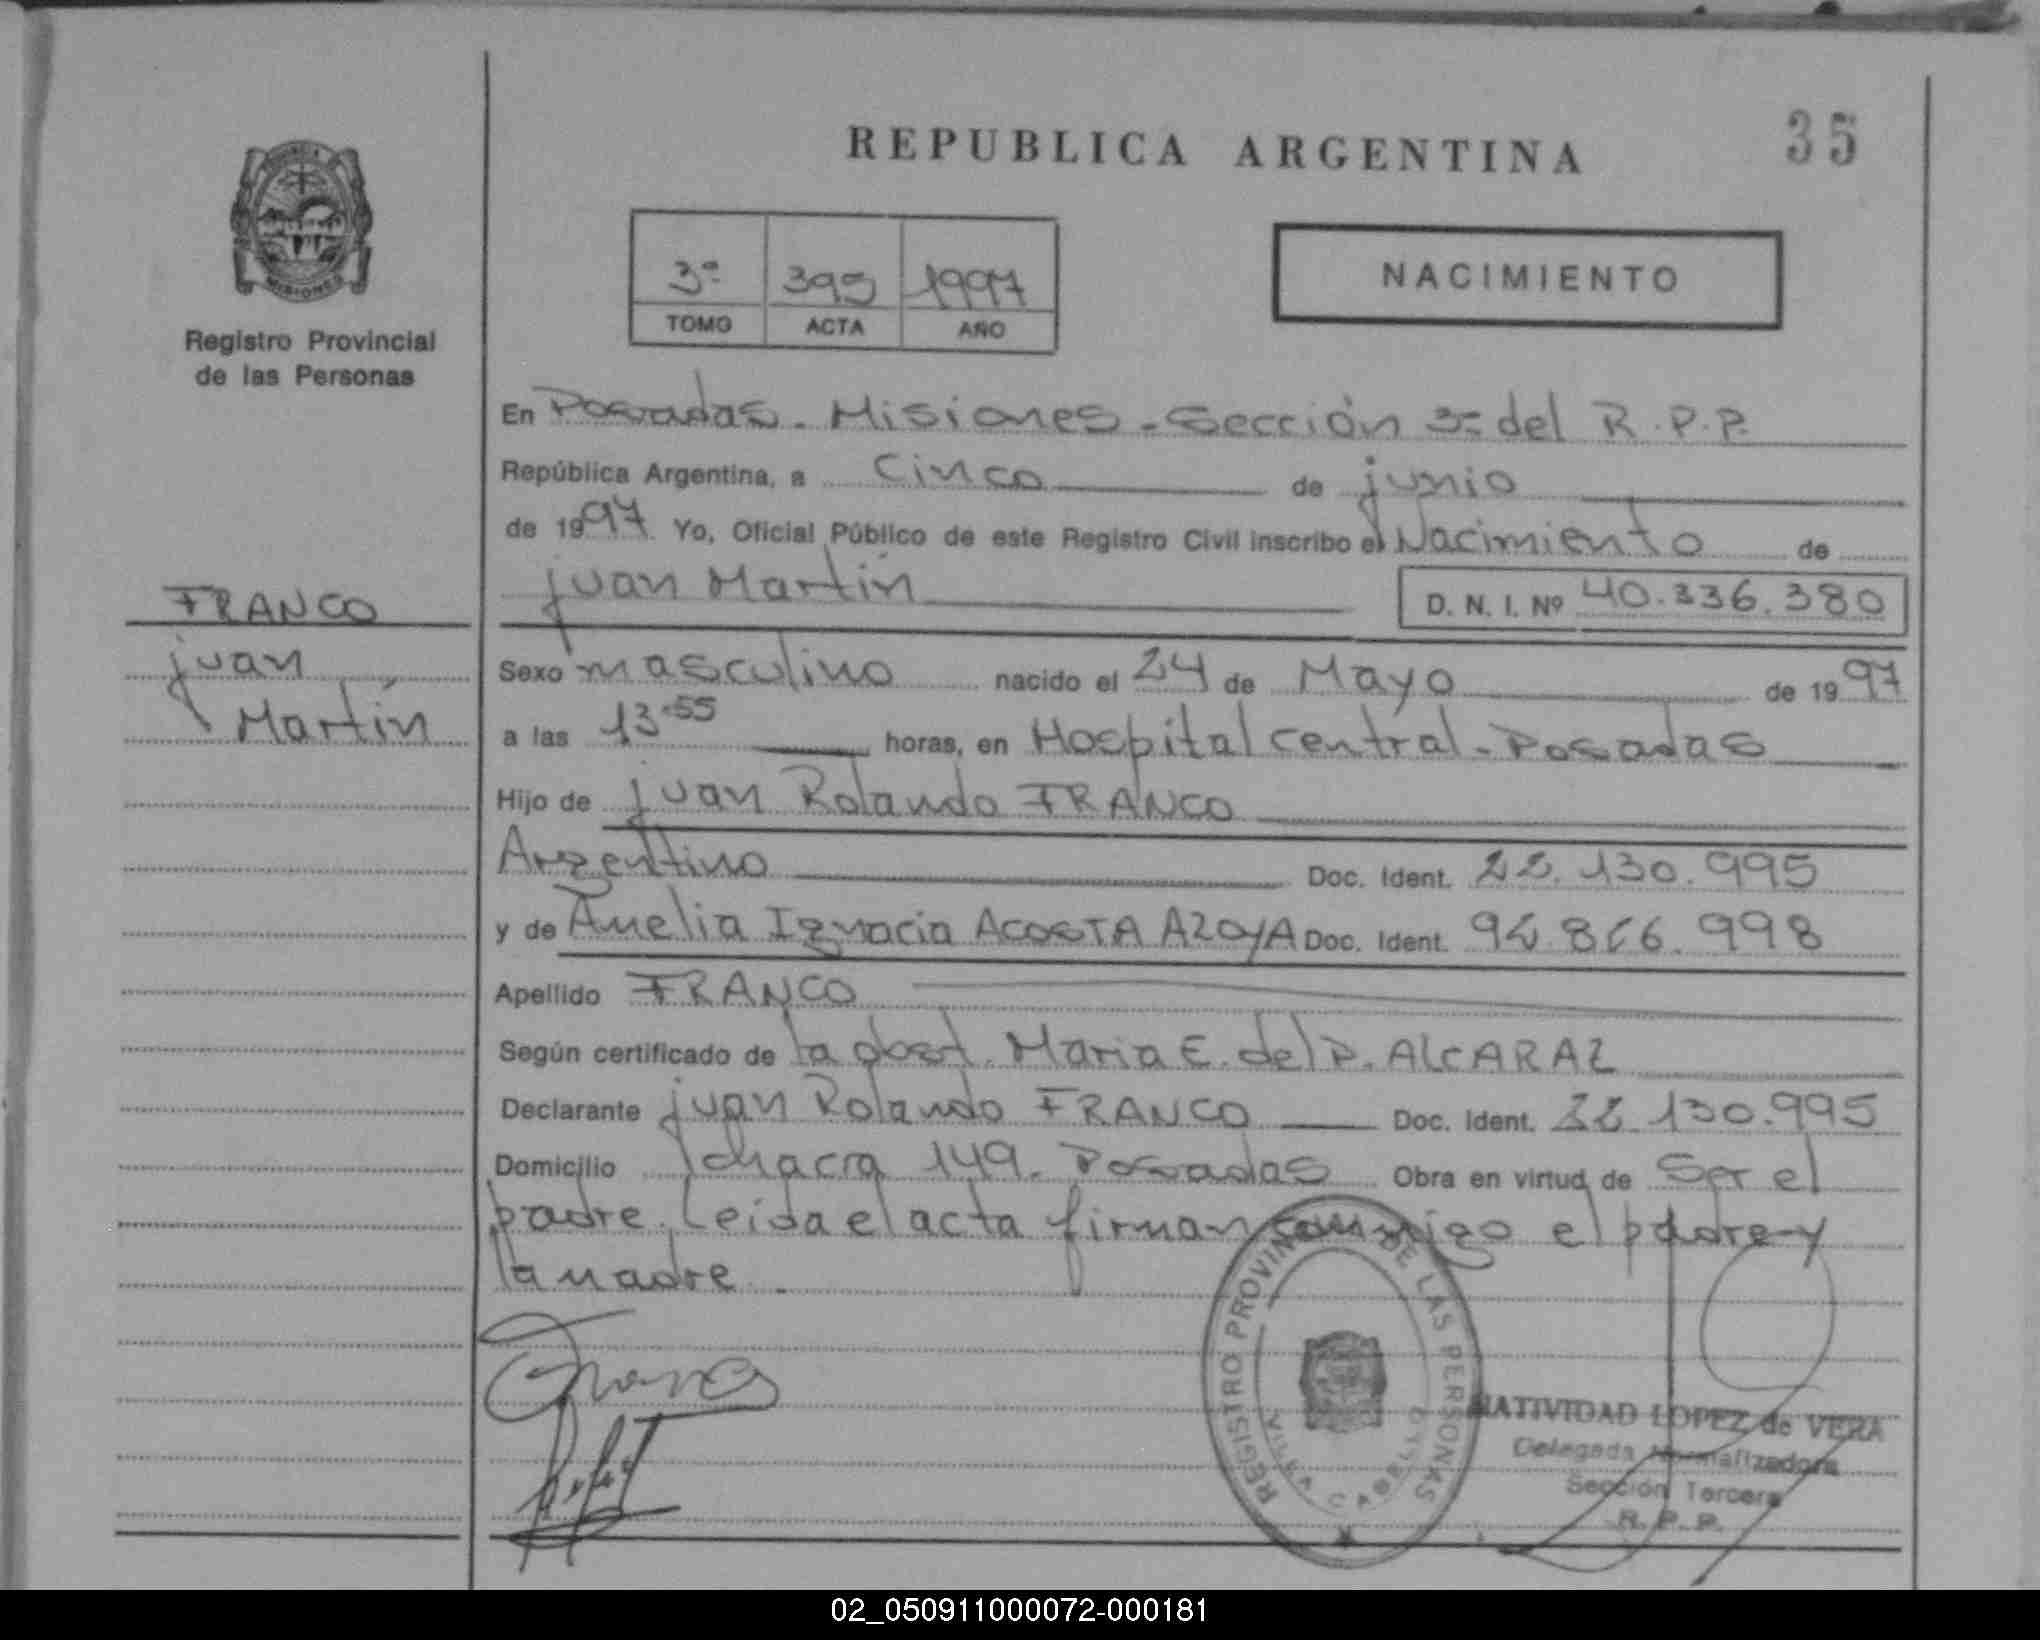 REPUBLICA ARGENTINA
35
PROVINCIA
MISIONES
Registro Provincial
de las Personas
3ª 395 1997
TOMO ACTA AÑO
NACIMIENTO
En Posadas - Misiones - Sección 3ª del R.P.P.
República Argentina, a Cinco de junio
de 1997 Yo, Oficial Público de este Registro Civil inscribo el Nacimiento de
juan Martín D. N. I. Nº 40.336.380
FRANCO
juan
Martín
Sexo masculino nacido el 24 de Mayo de 1997
a las 13.55 horas, en Hospital central - Posadas
Hijo de juan Rolando FRANCO
Argentino Doc. Ident. 22.130.995
y de Amelia Ignacia ACOSTA AZOYA Doc. Ident.
Apellido FRANCO
Según certificado de la obst. Maria E. del P. ALCARAZ
Declarante juan Rolando FRANCO Doc. Ident. 22.130.995
Domicilio chacra 149. Posadas Obra en virtud de Ser el
padre. Leida el acta firman conmigo el padre y
la madre.
REGISTRO PROVINCIAL DE LAS PERSONAS
VILLA CABELLO
NATIVIDAD LOPEZ de VERA
Delegada Normalizadora
Sección Tercera
R. P. P.
02_050911000072-000181